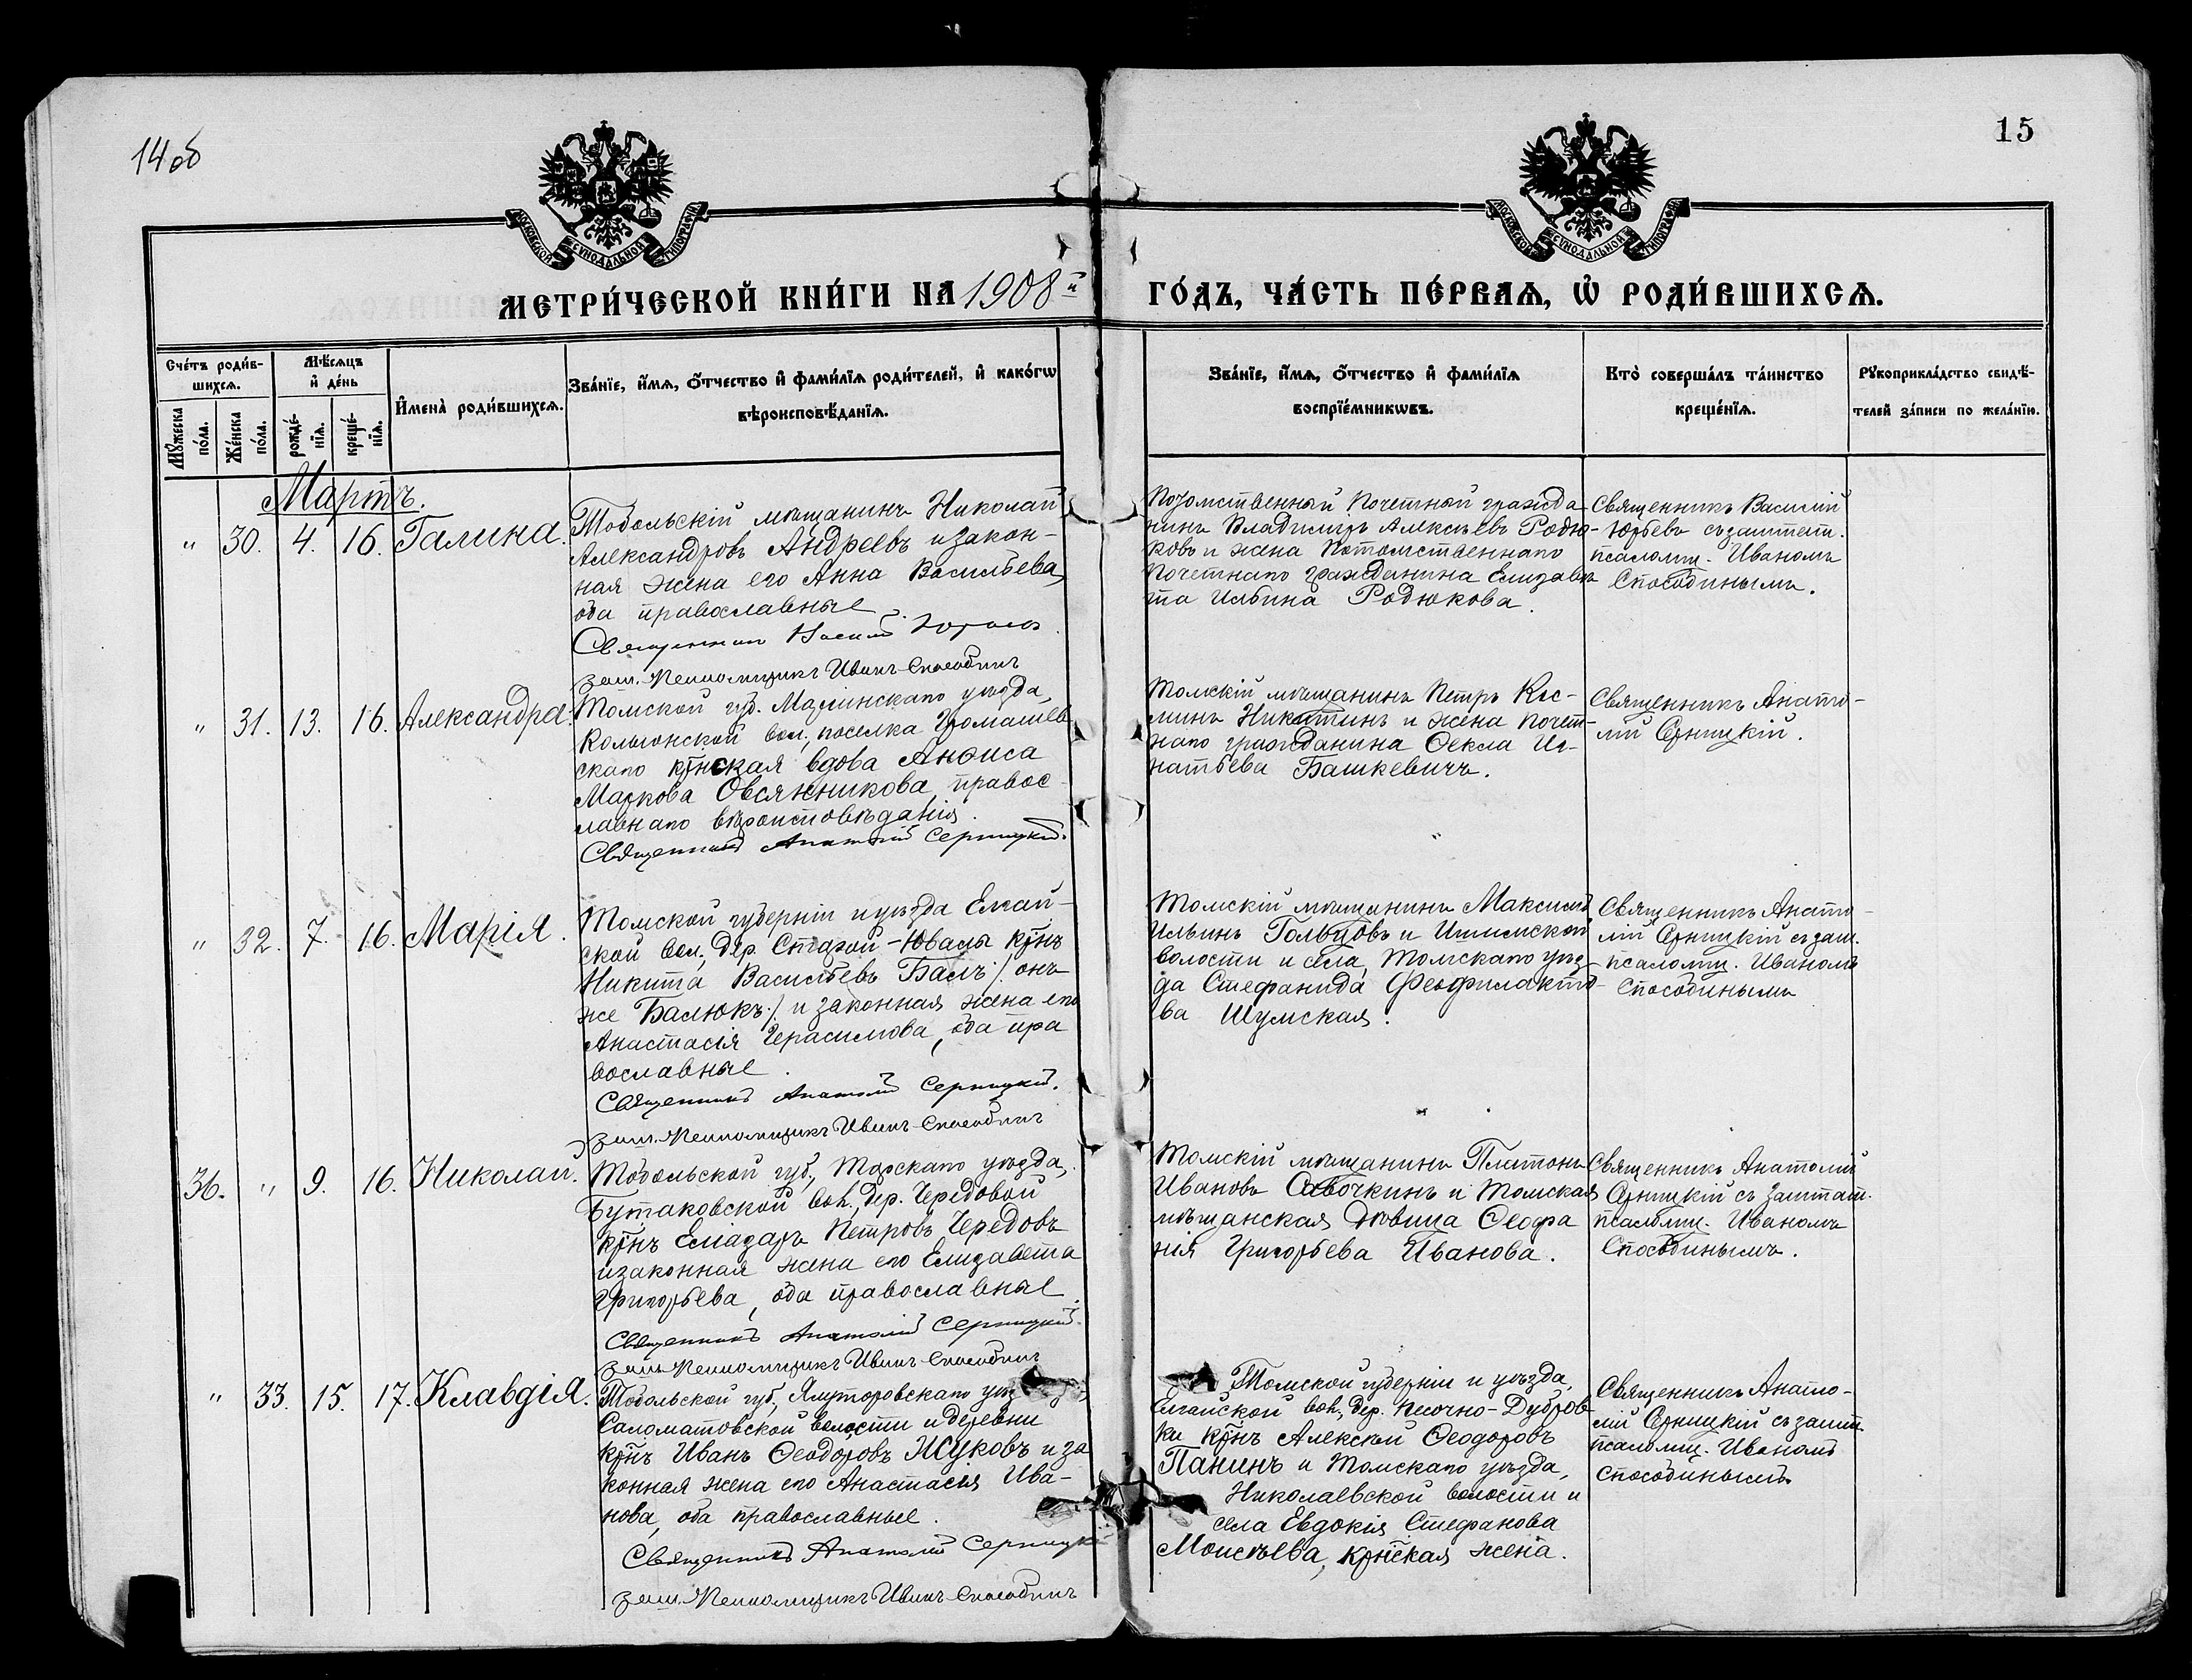 14об
15
МОСКОВСКОЙ СѴНОДАЛЬНОЙ ТИПОГРАФІИ
МОСКОВСКОЙ СѴНОДАЛЬНОЙ ТИПОГРАФІИ
МЕТРИ́ЧЕСКОЙ КНИ́ГИ НА 1908й
ГО́ДЪ, ЧА́СТЬ ПЕ́РВАѦ, Ѡ҆ РОДИ́ВШИХСѦ.
Сче́тъ роди́в-
шихсѧ.
Мꙋ́жеска
по́ла.
Же́нска
по́ла.
Мѣ́сѧцъ
и҆ де́нь
рожде́-
нїѧ.
креще́-
нїѧ.
И҆мена̀ роди́вшихсѧ.
Зва́нїе, и҆́мѧ, ѻ҆́тчество и҆ фами́лїѧ роди́телей, и҆ како́гѡ
вѣроисповѣ́данїѧ.
Зва́нїе, и҆́мѧ, ѻ҆́тчество и҆ фами́лїѧ
воспрїе́мникѡвъ.
Кто̀ соверша́лъ та́инство
креще́нїѧ.
Рꙋкоприкла́дство свидѣ́-
телей за́писи по жела́нїю.
Мартъ.
" 30. 4. 16. Галина.
Тобольскій мѣщанинъ Николай
Александровъ Андреевъ и закон-
ная жена его Анна Васильева,
оба православные.
Священникъ Василій Юрьевъ
заш. Псаломщикъ Иванъ Способинъ
Потомственный Почетный гражда
нинъ Владиміръ Алексѣевъ Родю-
ковъ и жена Потомственнаго
Почетнаго гражданина Елизаве
та Ильина Родюкова.
Священникъ Василій
Юрьевъ съ заштат.
псаломщ. Иваномъ
Способинымъ.
" 31. 13. 16. Александра.
Томской губ. Маріинскаго уѣзда,
Колыонской вол., поселка Громашев
скаго крнская вдова Анѳиса
Маркова Овсянникова, правос-
лавнаго вѣроисповѣданія.
Священникъ Анатолій Серницкій.
Томскій мѣщанинъ Петръ Кос-
минъ Никитинъ и жена почет-
наго гражданина Ѳекла Иг-
натьева Башкевичъ.
Священникъ Анато-
лій Серницкій.
" 32. 7. 16. Марія.
Томской губерніи и уѣзда Елгай-
ской вол., дер. Старой-Ювалы крнъ
Никита Васильевъ Балъ /: онъ
же Балюкъ :/ и законная жена его
Анастасія Герасимова, оба пра
вославные.
Священникъ Анатолій Серницкій.
заш. Псаломщикъ Иванъ Способинъ
Томскій мѣщанинъ Максимъ
Ильинъ Гольцовъ и Ишимской
волости и села, Томскаго уѣз-
да Стефанида Феофилакто-
ва Шумская.
Священникъ Анато-
лій Серницкій съ заш.
псаломщ. Иваномъ
Способинымъ
36. " 9. 16. Николай.
Тобольской губ., Тарскаго уѣзда,
Бутаковской вол., дер. Чередовой
крнъ Еліазаръ Петровъ Чередовъ
и законная жена его Елизавета
Григорьева, оба православные.
Священникъ Анатолій Серницкій.
заш. Псаломщикъ Иванъ Способинъ
Томскій мѣщанинъ Платонъ
Ивановъ Савочкинъ и Томская
мѣщанская дѣвица Ѳеофа
нія Григорьева Иванова.
Священникъ Анатолій
Серницкій съ заштат.
псаломщ. Иваномъ
Способинымъ.
" 33. 15. 17. Клавдія.
Тобольской губ., Ялуторовскаго уѣз
Саломатовской волости и деревни
крнъ Иванъ Ѳеодоровъ Жуковъ и за
конная жена его Анастасія Ива-
нова, оба православные.
Священникъ Анатолій Серницкі
заш. Псаломщикъ Иванъ Способинъ
Томской губерніи и уѣзда,
Елгайской вол., дер. Песочно-Дубров
ки крнъ Алексѣй Ѳеодоровъ
Панинъ и Томскаго уѣзда,
Николаевской волости и
села Евдокія Стефанова
Моисѣева, крнская жена.
Священникъ Анато-
лій Серницкій съ зашт.
псаломщ. Иваномъ
Способинымъ.